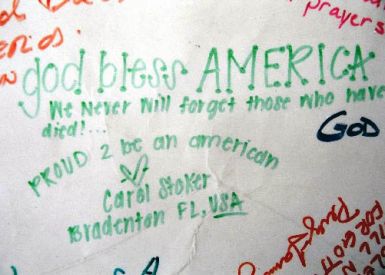 prayers
god bless AMERICA
We Never Will forget those who have
died!...
GOD
PROUD 2 be an american
Carol Stoker
Bradenton FL, USA